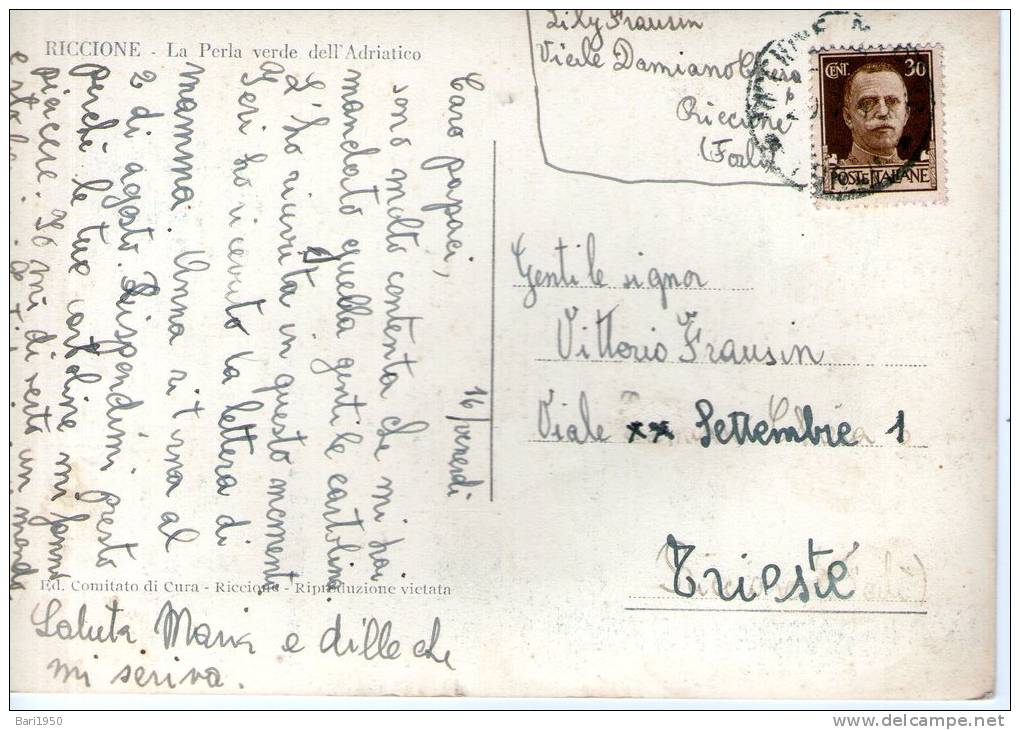 RICCIONE - La Perla verde dell'Adriatico
Lily Frausin
Viale Damiano
Riccione
(Forlì
CENT. 30
POSTE ITALIANE
16/venerdì
Caro papaci,
sono molto contenta che mi hai
mandato quella gentile cartolina
L'ho ricevuta in questo momento
Ieri ho ricevuto la lettera di
mamma. Anna ritorna al
2 di agosto. Rispondimi presto
perché le tue cartoline mi fanno
piacere. Io mi diverto un mondo
Saluta Maria e dille che
mi scriva.
Gentile signor
Vittorio Frausin
Viale XX Settembre 1
Trieste
Ed. Comitato di Cura - Riccione - Riproduzione vietata
Bari1950
delcampe.net